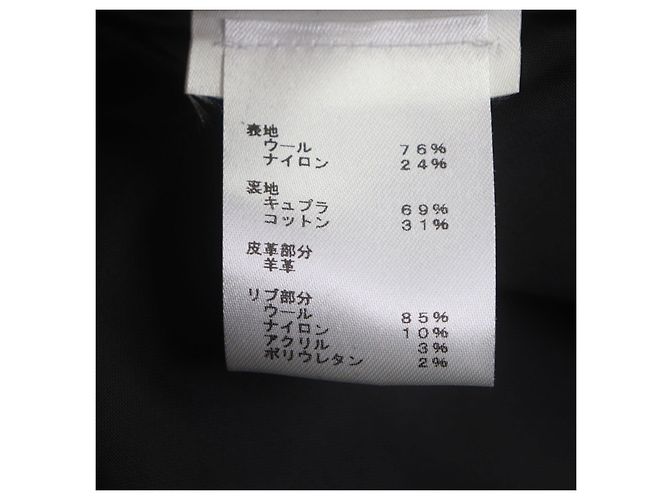 表地
ウール 76%
ナイロン 24%
裏地
キュプラ 69%
コットン 31%
皮革部分
羊革
リブ部分
ウール 85%
ナイロン 10%
アクリル 3%
ポリウレタン 2%